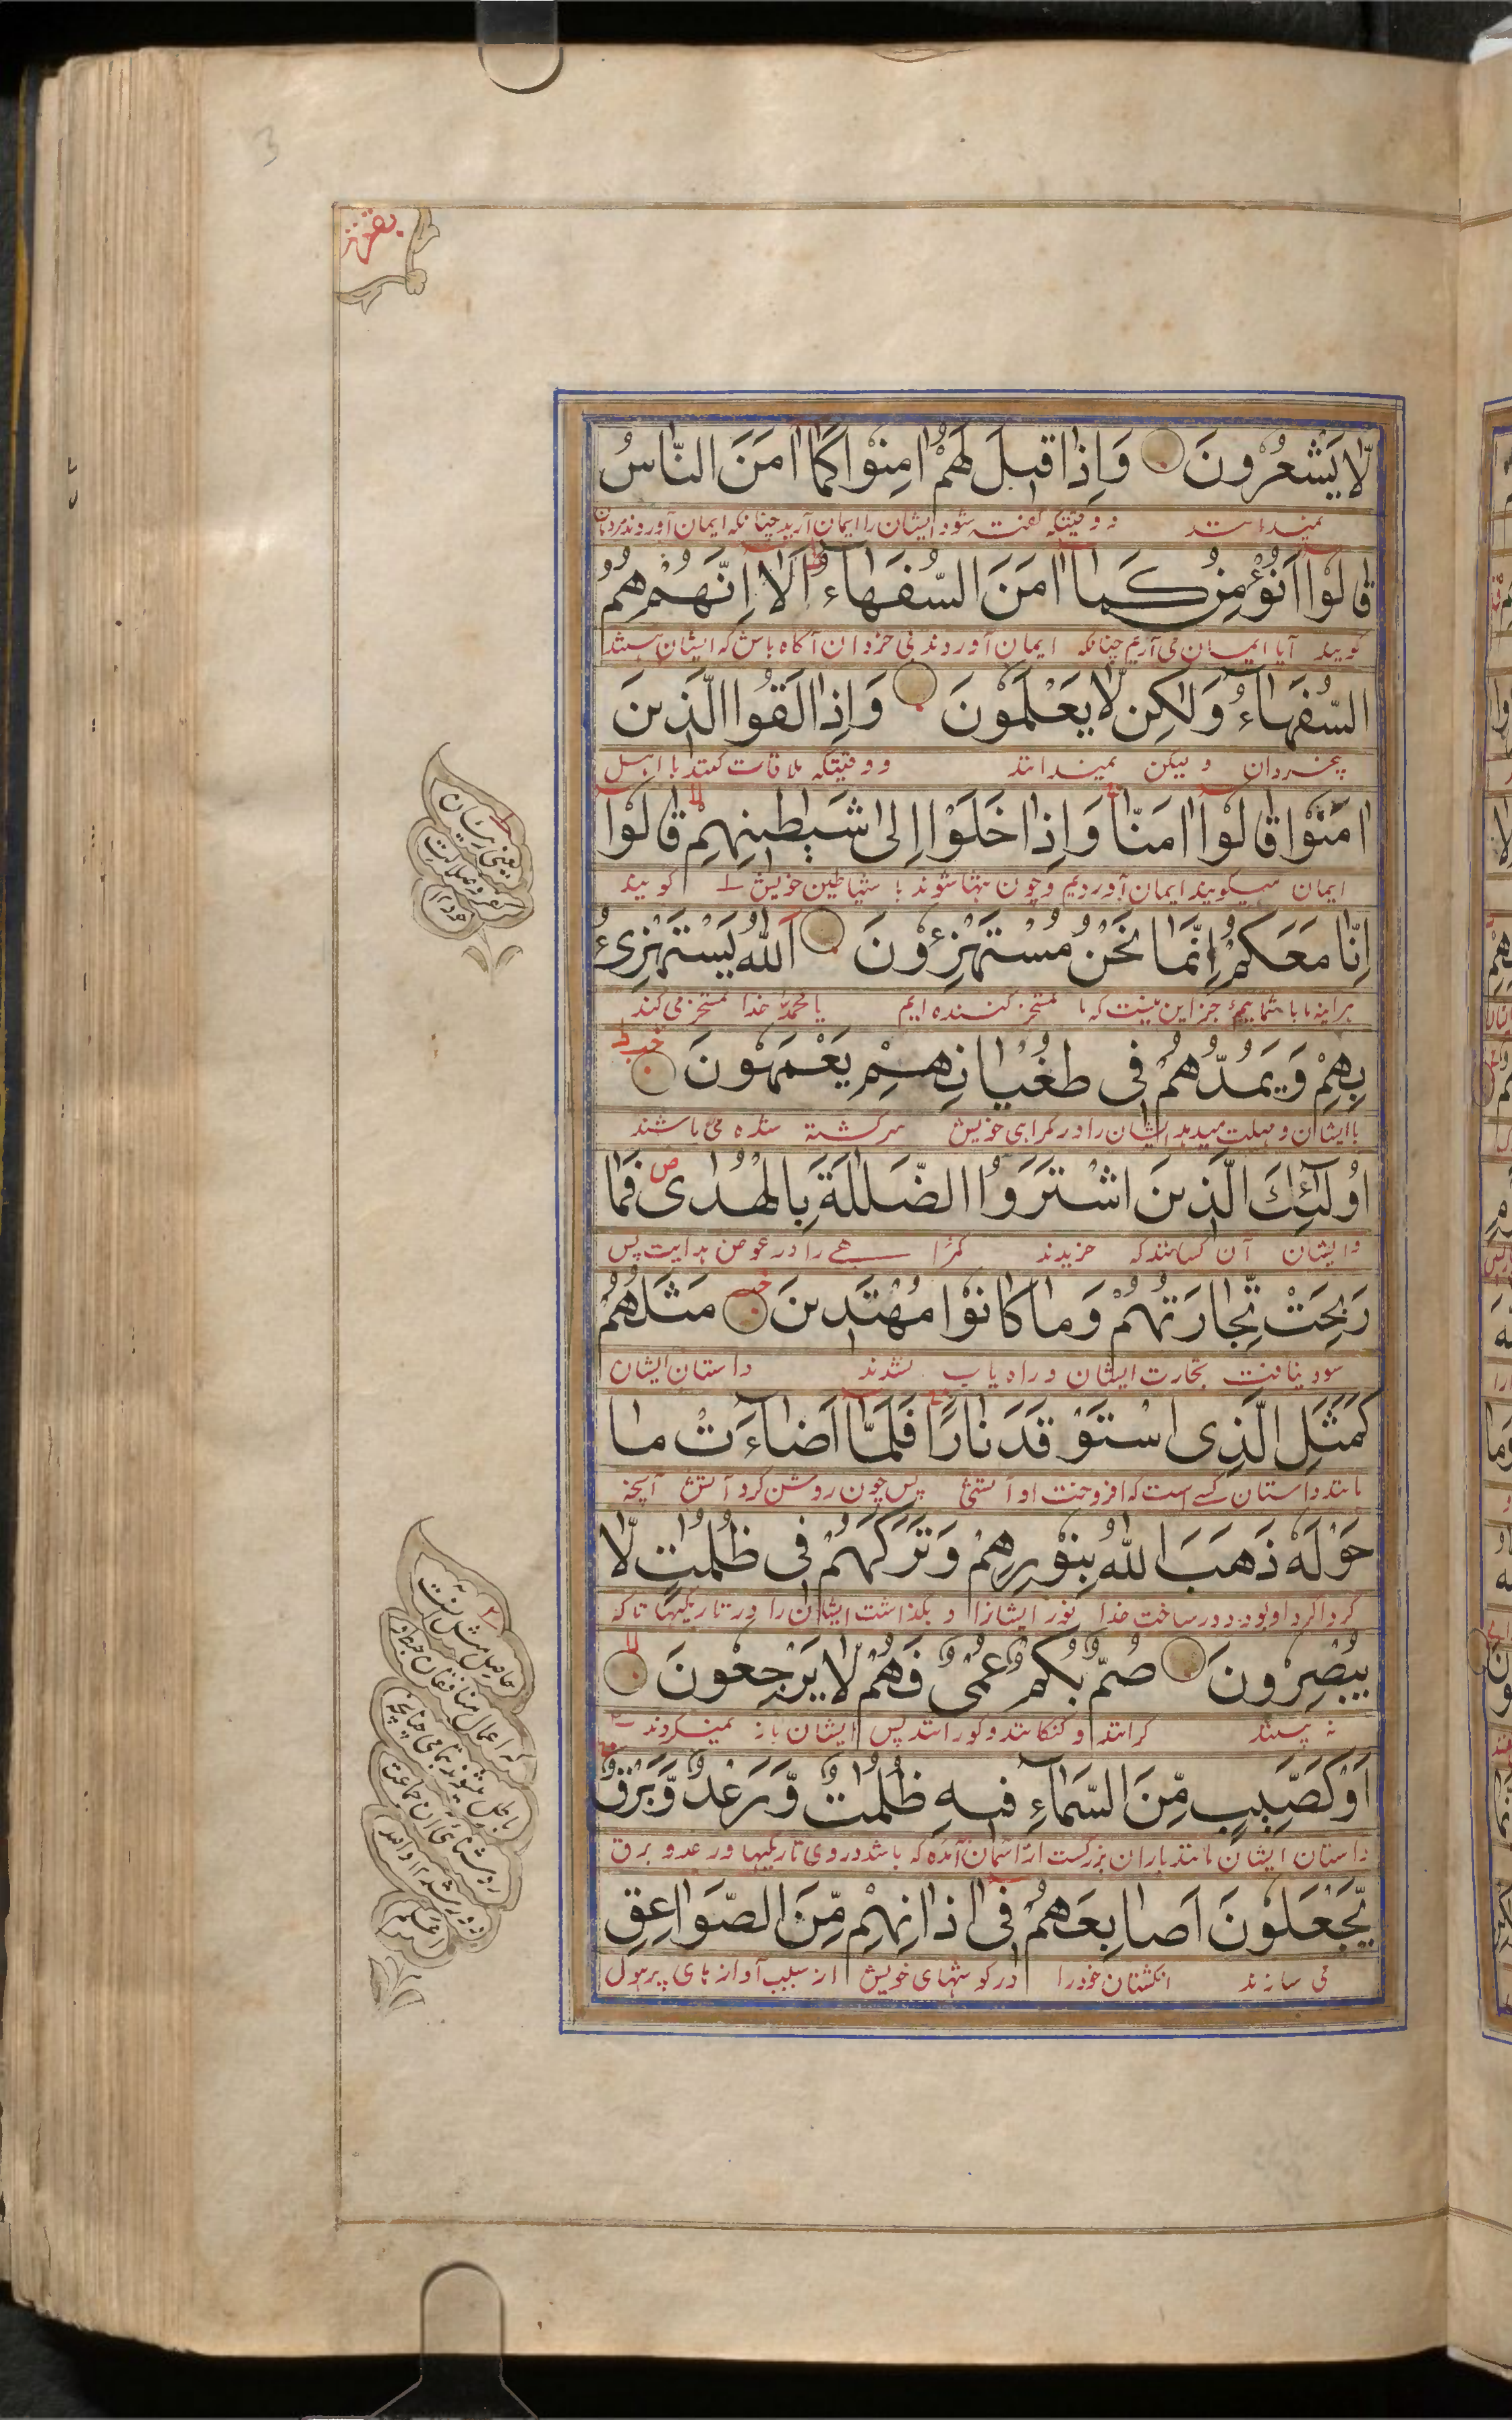 3
بقرة
لَّا يَشْعُرُونَ وَاِذَا قِيلَ لَهُمْ اٰمِنُوْا كَمَا اٰمَنَ النَّاسُ
نمیدانند و وقتیکه گفته شود ایشان را ایمان آرید چنانکه ایمان آوردند مردمان
قَالُوْا اَنُؤْمِنُ كَمَا اٰمَنَ السُّفَهَاءُ اَلَا اِنَّهُمْ هُمُ
گویند آیا ایمان می آریم چنانکه ایمان آوردند بی خردان آگاه باش که ایشان هستند
السُّفَهَاءُ وَلٰكِن لَّا يَعْلَمُوْنَ وَاِذَا لَقُوا الَّذِينَ
بیخردان و لیکن نمیدانند و وقتیکه ملاقات کنند با اهل
اٰمَنُوْا قَالُوْا اٰمَنَّا وَاِذَا خَلَوْا اِلٰى شَيٰطِينِهِمْ قَالُوْا
ایمان میگویند ایمان آوردیم و چون تنها شوند با شیاطین خویش گویند
اِنَّا مَعَكُمْ اِنَّمَا نَحْنُ مُسْتَهْزِءُوْنَ اَللّٰهُ يَسْتَهْزِئُ
هرآینه ما با شماییم جز این نیست که ما تمسخر کننده ایم یا محمد خدا تمسخر می کند
بِهِمْ وَيَمُدُّهُمْ فِى طُغْيَانِهِمْ يَعْمَهُوْنَ
با ایشان و مهلت میدهد ایشان را در گمراهی خویش سرگشته شده می باشند
اُولٰٓئِكَ الَّذِينَ اشْتَرَوُا الضَّلٰلَةَ بِالْهُدٰى فَمَا
و ایشان آن کسانند که خریدند گمراهی را در عوض هدایت پس
رَبِحَتْ تِّجَارَتُهُمْ وَمَا كَانُوْا مُهْتَدِينَ مَثَلُهُمْ
سود نیافت تجارت ایشان و راه یاب نشدند داستان ایشان
كَمَثَلِ الَّذِى اسْتَوْقَدَ نَارًا فَلَمَّا اَضَاءَتْ مَا
مانند داستان کسے است که افروخت او آتشی پس چون روشن کرد آتش آنچه
حَوْلَهٗ ذَهَبَ اللّٰهُ بِنُوْرِهِمْ وَتَرَكَهُمْ فِى ظُلُمٰتٍ لَّا
گرداگرد او بود دور ساخت خدا نور ایشانرا و بگذاشت ایشان را در تاریکیها تا که
يُبْصِرُوْنَ صُمٌّ بُكْمٌ عُمْىٌ فَهُمْ لَا يَرْجِعُوْنَ
نه بینند کرانند و گنگانند و کورانند پس ایشان باز نمیگردند
اَوْ كَصَيِّبٍ مِّنَ السَّمَاءِ فِيهِ ظُلُمٰتٌ وَّرَعْدٌ وَّبَرْقٌ
داستان ایشان مانند باران بزرگست از آسمان آمده که باشد در وی تاریکیها و رعد و برق
يَّجْعَلُوْنَ اَصَابِعَهُمْ فِى اٰذَانِهِمْ مِّنَ الصَّوَاعِقِ
می سازند انگشتان خود را در گوشهای خویش از سبب آوازهای پر هول
یعنی
حاصل مثل
که اعمال منافقان